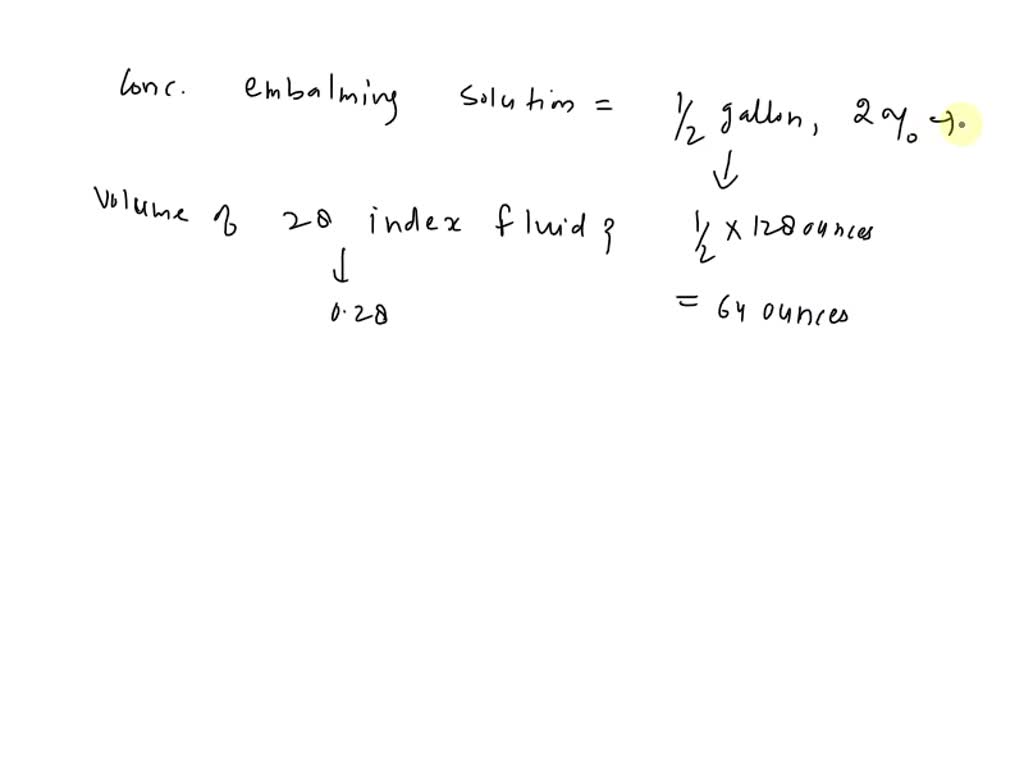 Conc. embalming solution = 1/2 gallon, 2% →.
↓
Volume of 28 index fluid? 1/2 × 128 ounces
↓
0.28 = 64 ounces